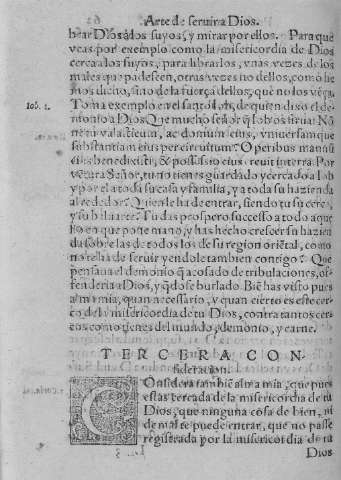 Arte de seruir a Dios.
hear Dios a los suyos, y mirar por ellos. Para que
veas por exemplo como la misericordia de Dios
cerca los suyos, para librarlos, vnas vezes de los
males que padescen, otras vezes no dellos, como he
mos dicho, sino de la fuerça dellos, que no los vẽça.
Iob. 1.
Toma exemplo en el sancto Iob, de quien dixo el de-
monio a Dios Que mucho señor q̃ Iob os sirua? Nõ
ne tu valasti eum, ac domum eius, vniuersamque
substantiam eius per circuitum? Operibus manuũ
eius benedixisti, & possessio eius creuit in terra. Por
vẽtura Señor, tu no tienes guardado y cercado a Iob
y por el a toda su casa y familia, y a toda su hazienda
al rededor? Quien le ha de entrar, siendo tu su cerca,
y su baluarte? Tu das prospero successo a todo aque
llo en que pone mano, y has hecho crescer su hazien
da sobre las de todos los de su region oriẽtal, como
no te ha de seruir yendole tambien contigo? Que
pensaua el demonio q̃ acosado de tribulaciones, of-
fenderia al Dios, y q̃dose burlado. Biẽ has visto pues
alma mia, quan necessario, y quan cierto es este cer-
co de la misericordia de tu Dios, contra tantos cer-
cos como tienes del mundo, demonio, y carne.
TERCERA CON-
sideracion.
COnsidera tambiẽ alma mia, que pues
estas cercada de la misericordia de tu
Dios, que ninguna cosa de bien, ni
de mal te puede entrar, que no passe
registrada por la misericordia de tu
Dios